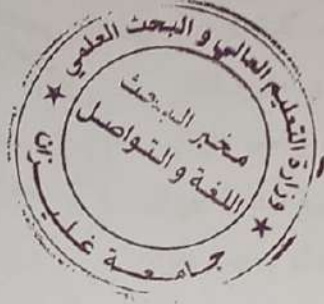 وزارة التعليم العالي و البحث العلمي
مخبر البحث
اللغة و التواصل
جامعة غليزان